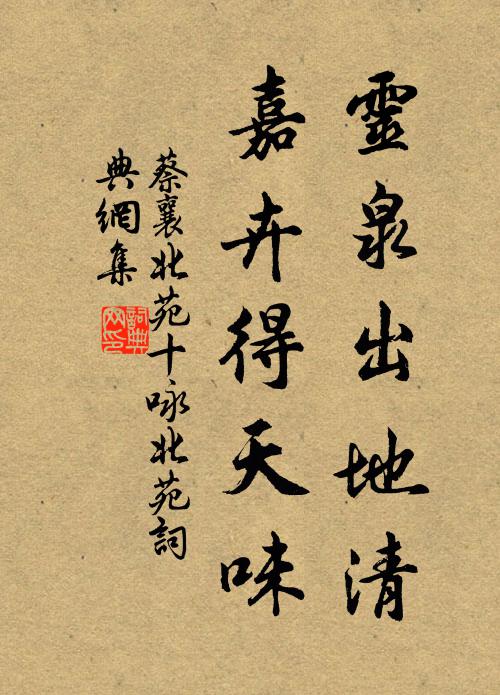 靈泉出地清
嘉卉得天味
蔡襄北苑十咏北苑詞
典網集
詞典
网印